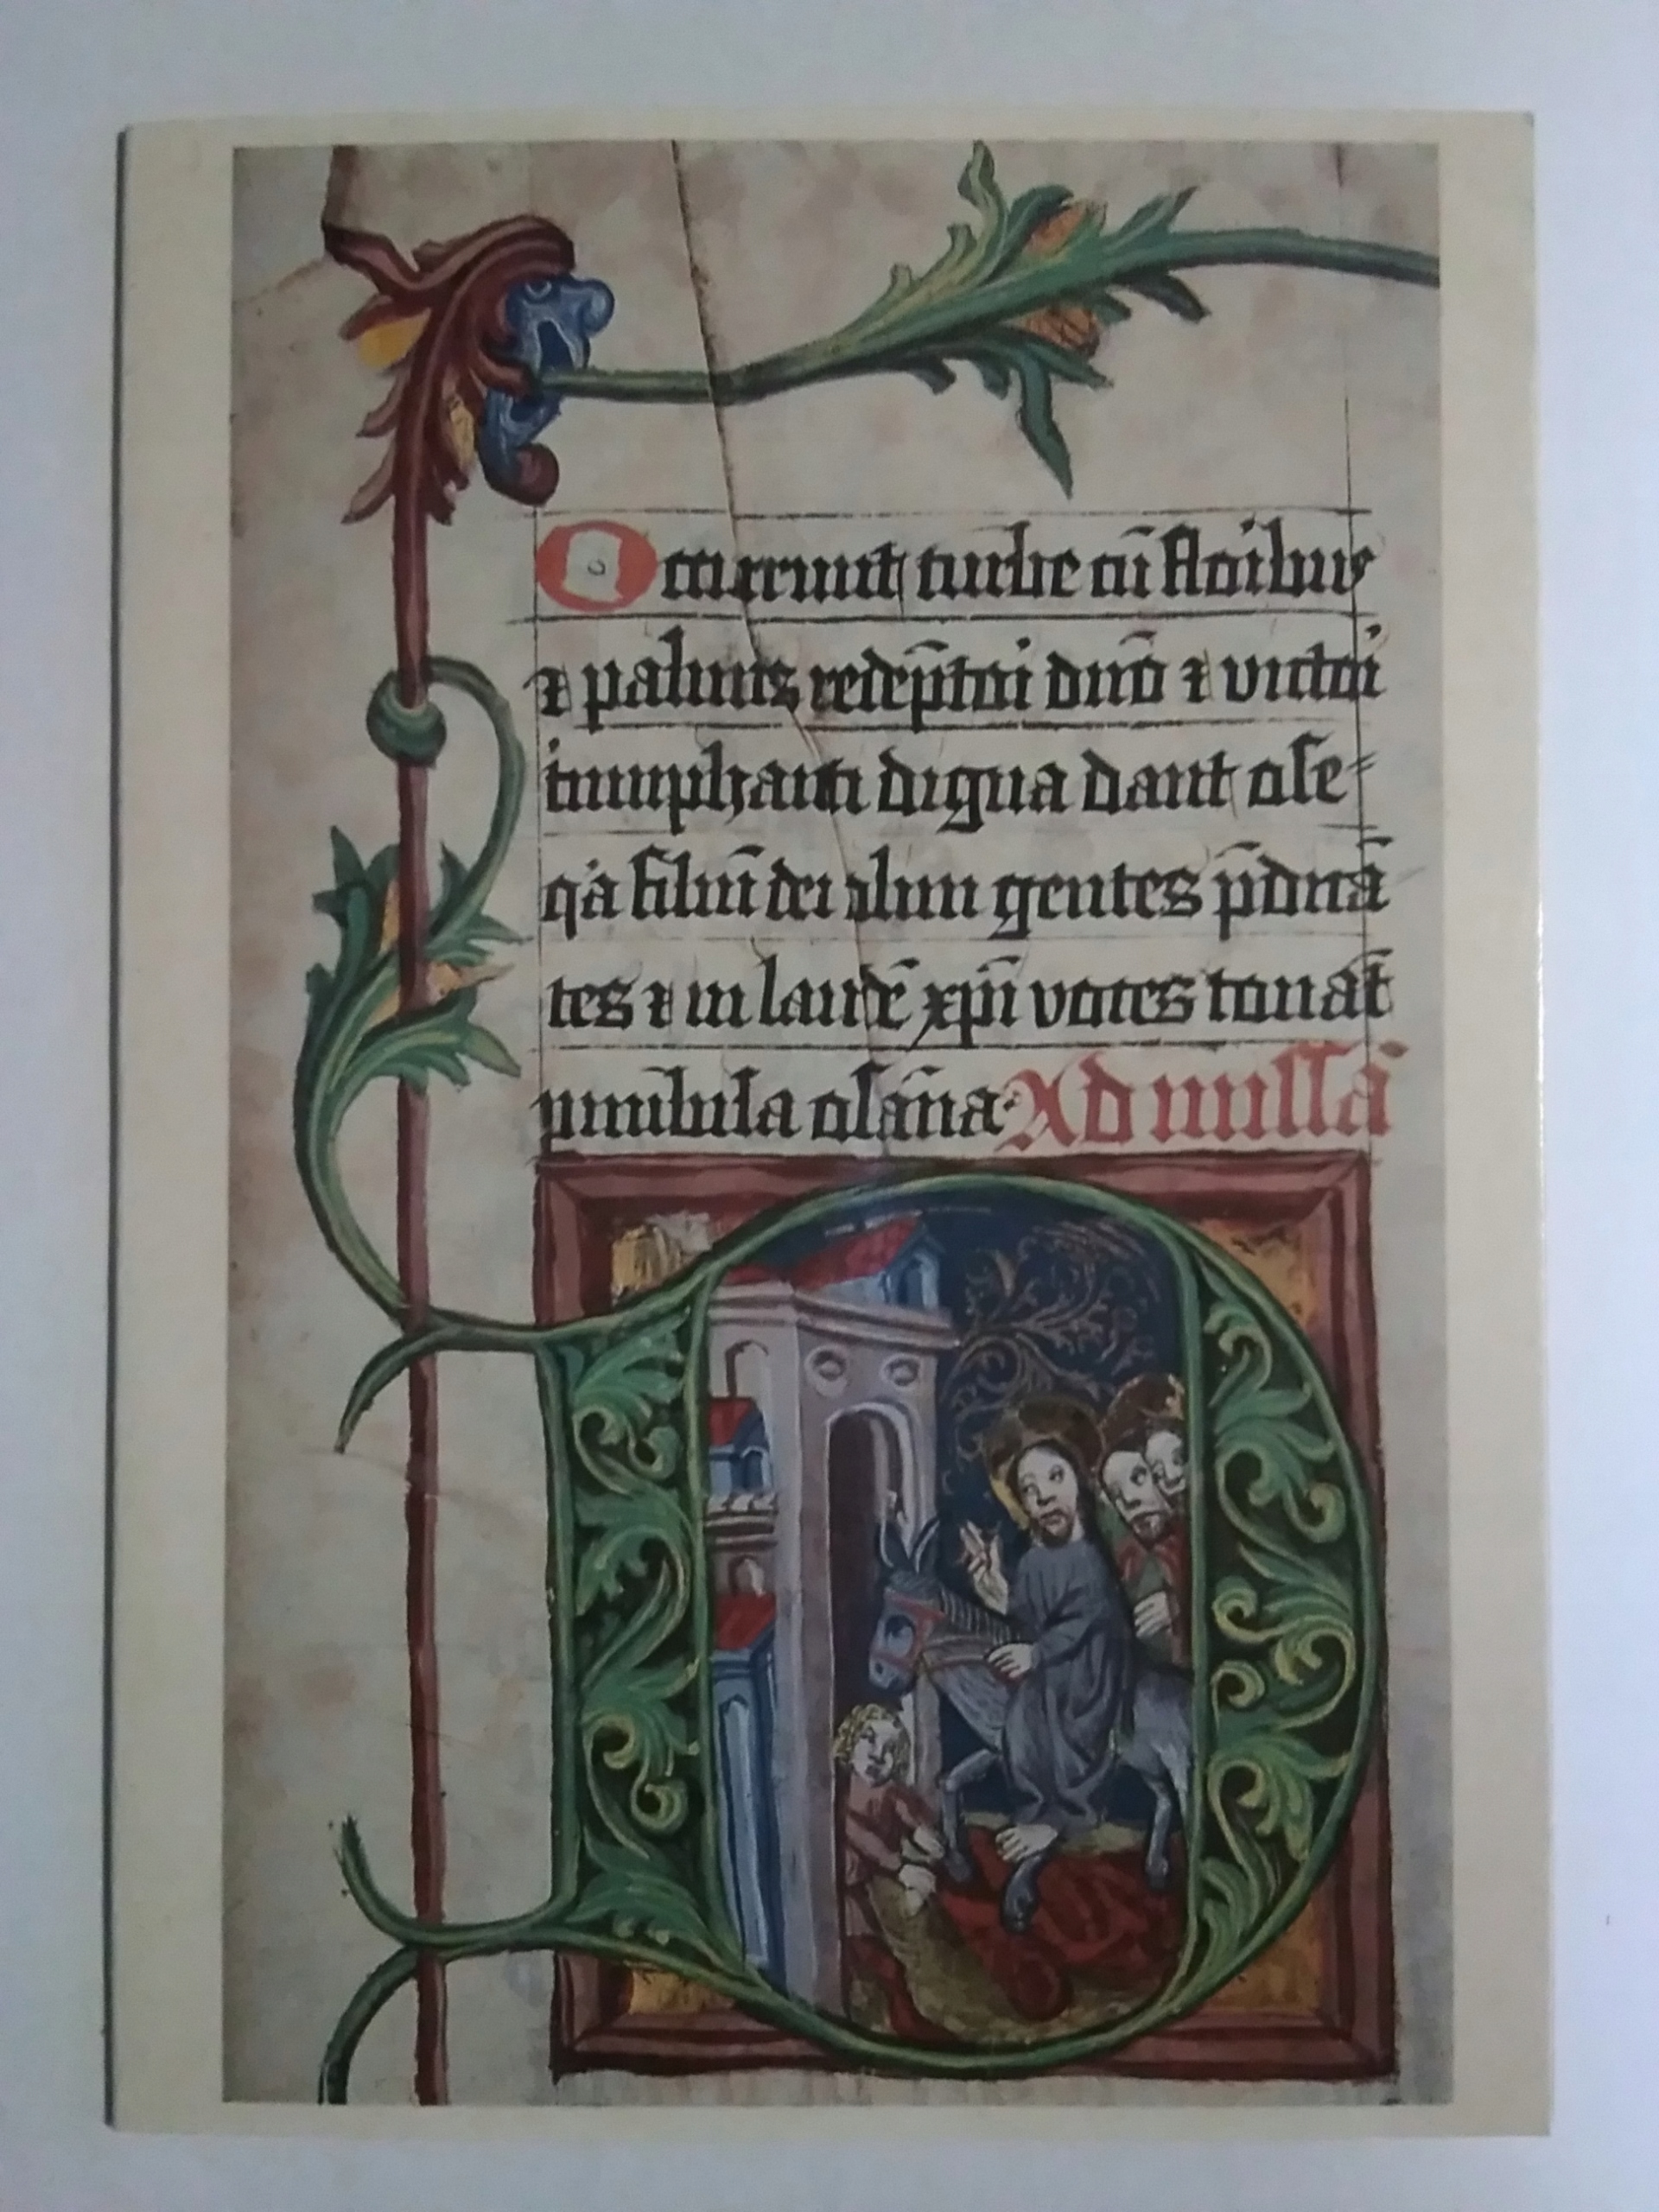 Occurrunt turbe cū floribus
⁊ palmis redēptori dnō ⁊ victori
triumphanti digna dant obse⸗
q'a filiū dei olim gentes p̄dicā
tes ⁊ in laudē xp̄i voces tonāt
p nubila osāna Ad missā